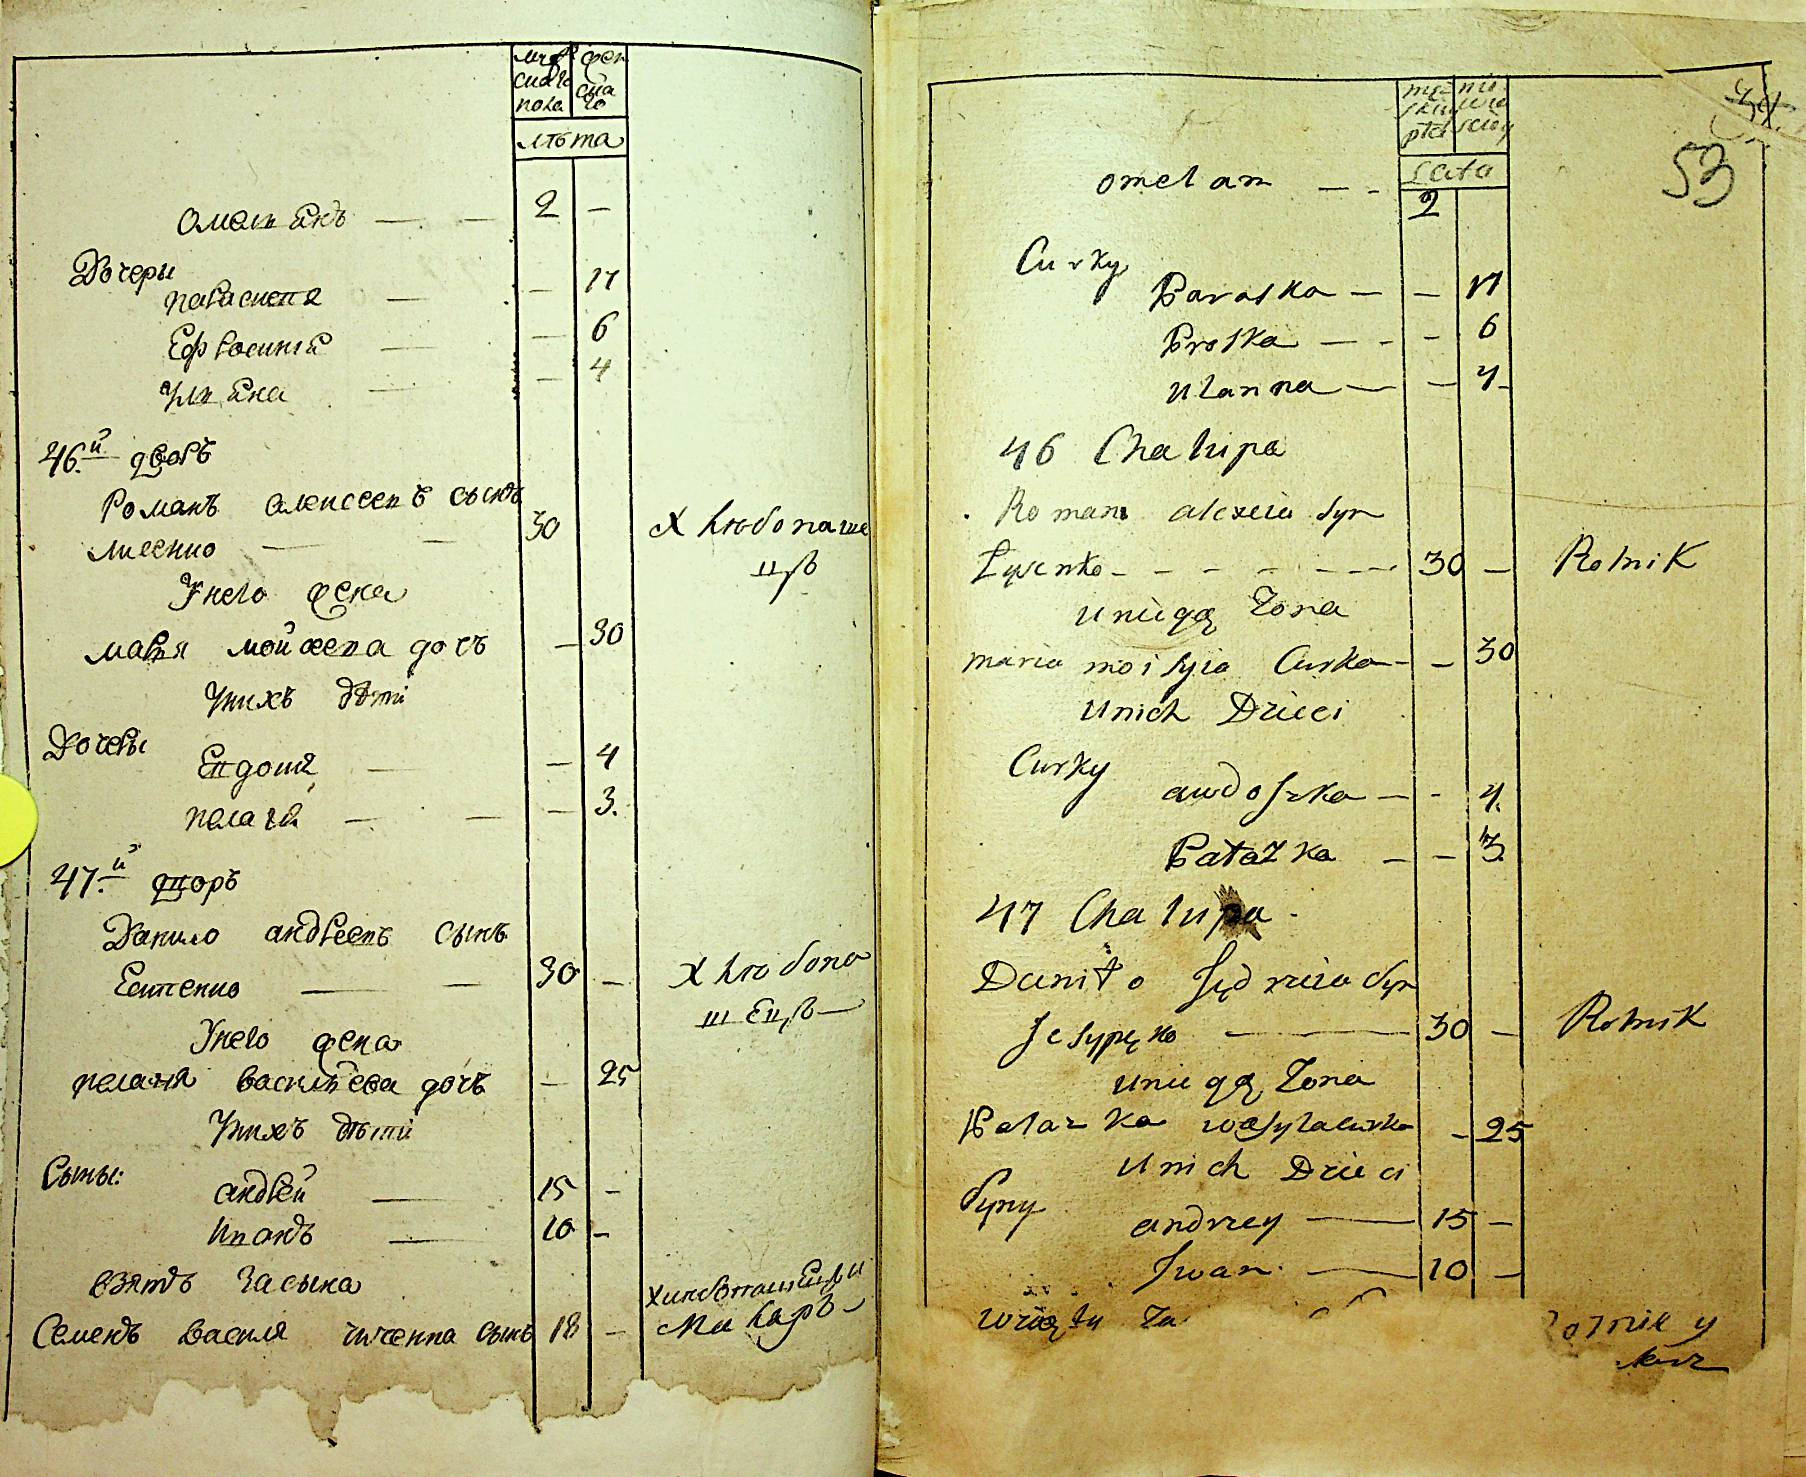 лѣта
Омелянъ — — 2 —
Дочеры
параскепя — — 17
Ефросиния — — 6
Уляна — — 4
46.й дворъ
Романъ алексеепъ сынъ
лисенко — — 30
Хлюбопаше
цръ
Унего жена
мавря мойсеепа дочъ — 30
Унихъ дѣти
Дочеры
Епдошя — — 4
пелагея — — — 3.
47.й дпоръ
Данило андреепъ сынъ
Есипенко — — 30 —
Хлюбопа
шецръ
Унего жена
пелагея василъева дочъ — 25
Унихъ дѣти
Сыны:
андрей — 15 —
Ипанъ — 10 —
взятъ засына
Семенъ василя сынъ 18 —
53
męz nie
skiey wie
płci sciey
Lata
omelan — - 2
Curky
Paraska — — 17
Proska — - — 6
Ulanna — — 4
46 Chalupa
Roman alexeia Syn
Łysenko - - - - - - 30 — Rolnik
Uniegą Zona
maria moisyia Curka - - 30
Unich Dzieci
Curky
awdoszka — - 4.
Pałazka — — 3
47 Chalupa
Daniło Jędrzeia Syn
Jesypęko — 30 — Rolnik
Uniegą Zona
Pałazka wasyla curka - 25
Unich Dzieci
Syny
andrzey — 15 —
Iwan — 10 —
wzięty za
rolnik y